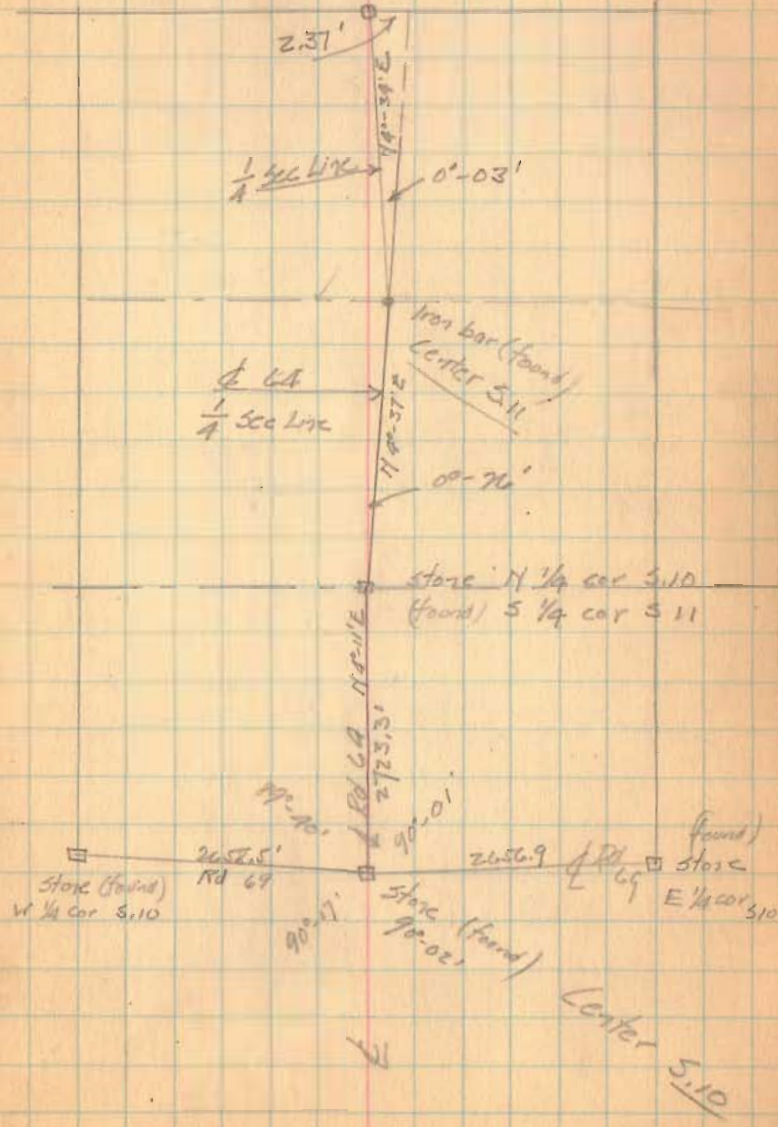 2.37'
N 0°-34' E
1/4 Sec Line
0°-03'
Iron bar (found)
Center S.11
℄ 64
1/4 Sec Line
N 0°-37' E
0°-26'
stone N 1/4 cor S.10
(found) S 1/4 cor S 11
N 0°-11' E
Rd 64
2723.3'
90°-01'
2652.5'
Rd 69
2656.9 ℄ Rd 69
(found)
stone
E 1/4 cor S10
Stone (found)
W 1/4 cor S.10
90°-17'
Stone (found)
90°-02'
Center S.10